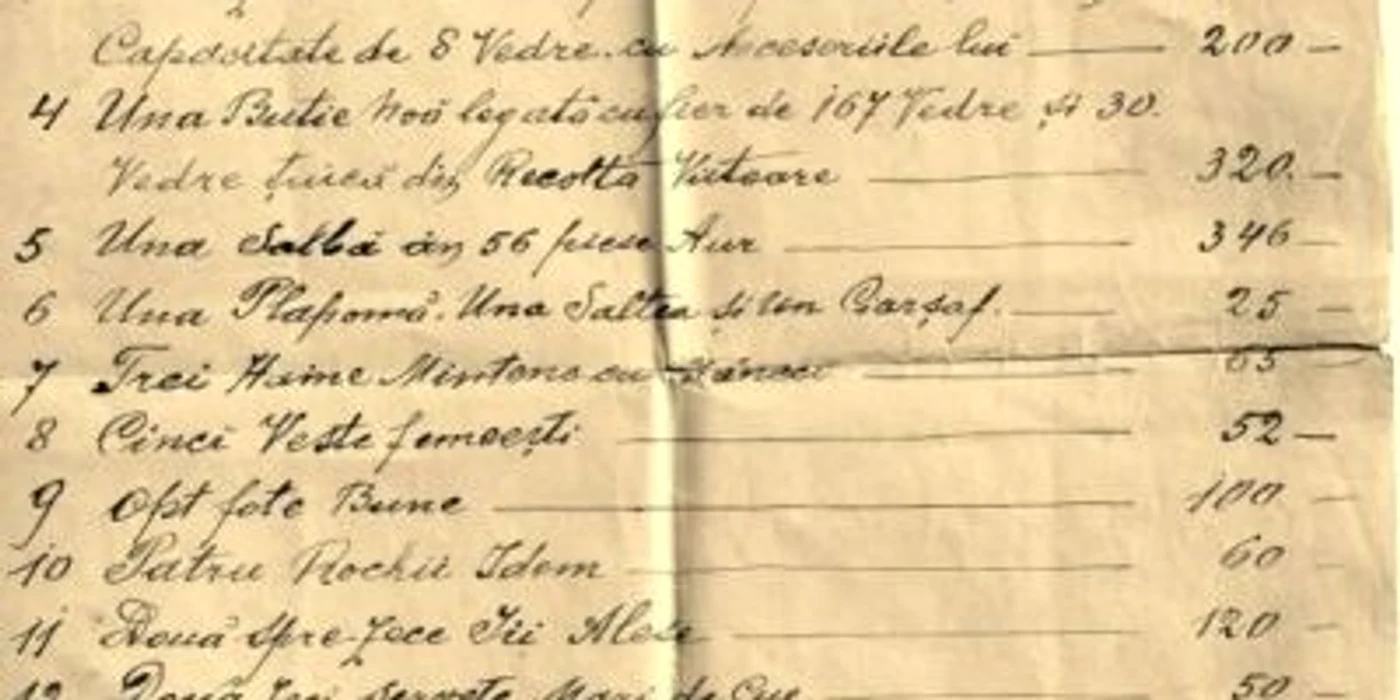 Capacitate de 8 Vedre. cu Accesoriile lui — 200 —
4 Una Butie Noă legată cu fier de 167 Vedre și 30.
Vedre țuică din Recolta Viitoare — 320. —
5 Una Salbă în 56 piese Aur — 346 —
6 Una Plapomă. Una Saltea și Un Carșaf. — 25 —
7 Trei Haine Mintene cu — 65 —
8 Cinci Veste femeești — 52 —
9 Opt fote Bune — 100 —
10 Patru Rochii Idem — 60 —
11 Două spre-Zece Ii Alese — 120 —
12 Două servete Mari de — 50 —